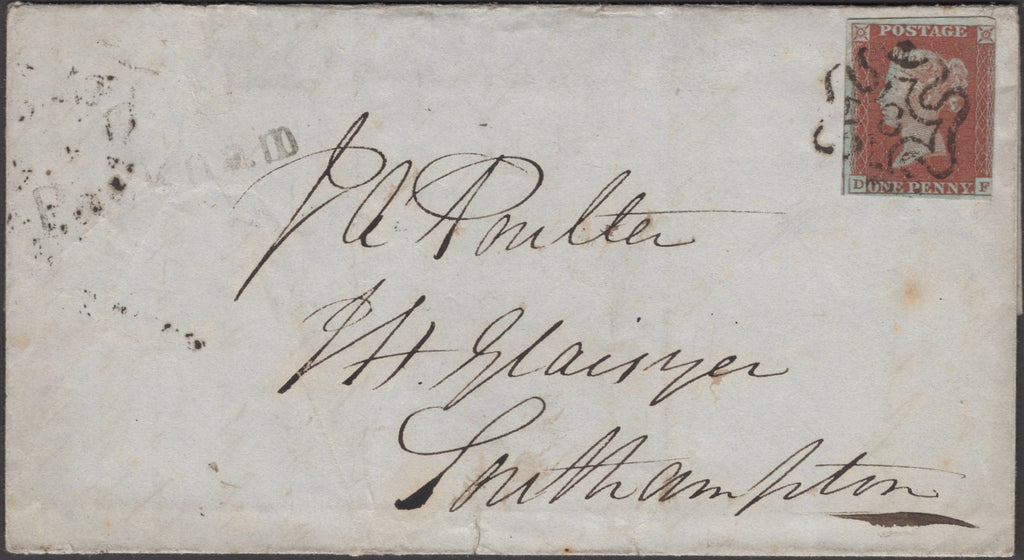 POSTAGE
D ONE PENNY F
J A Poulter
J H. Glaisyer
Southampton